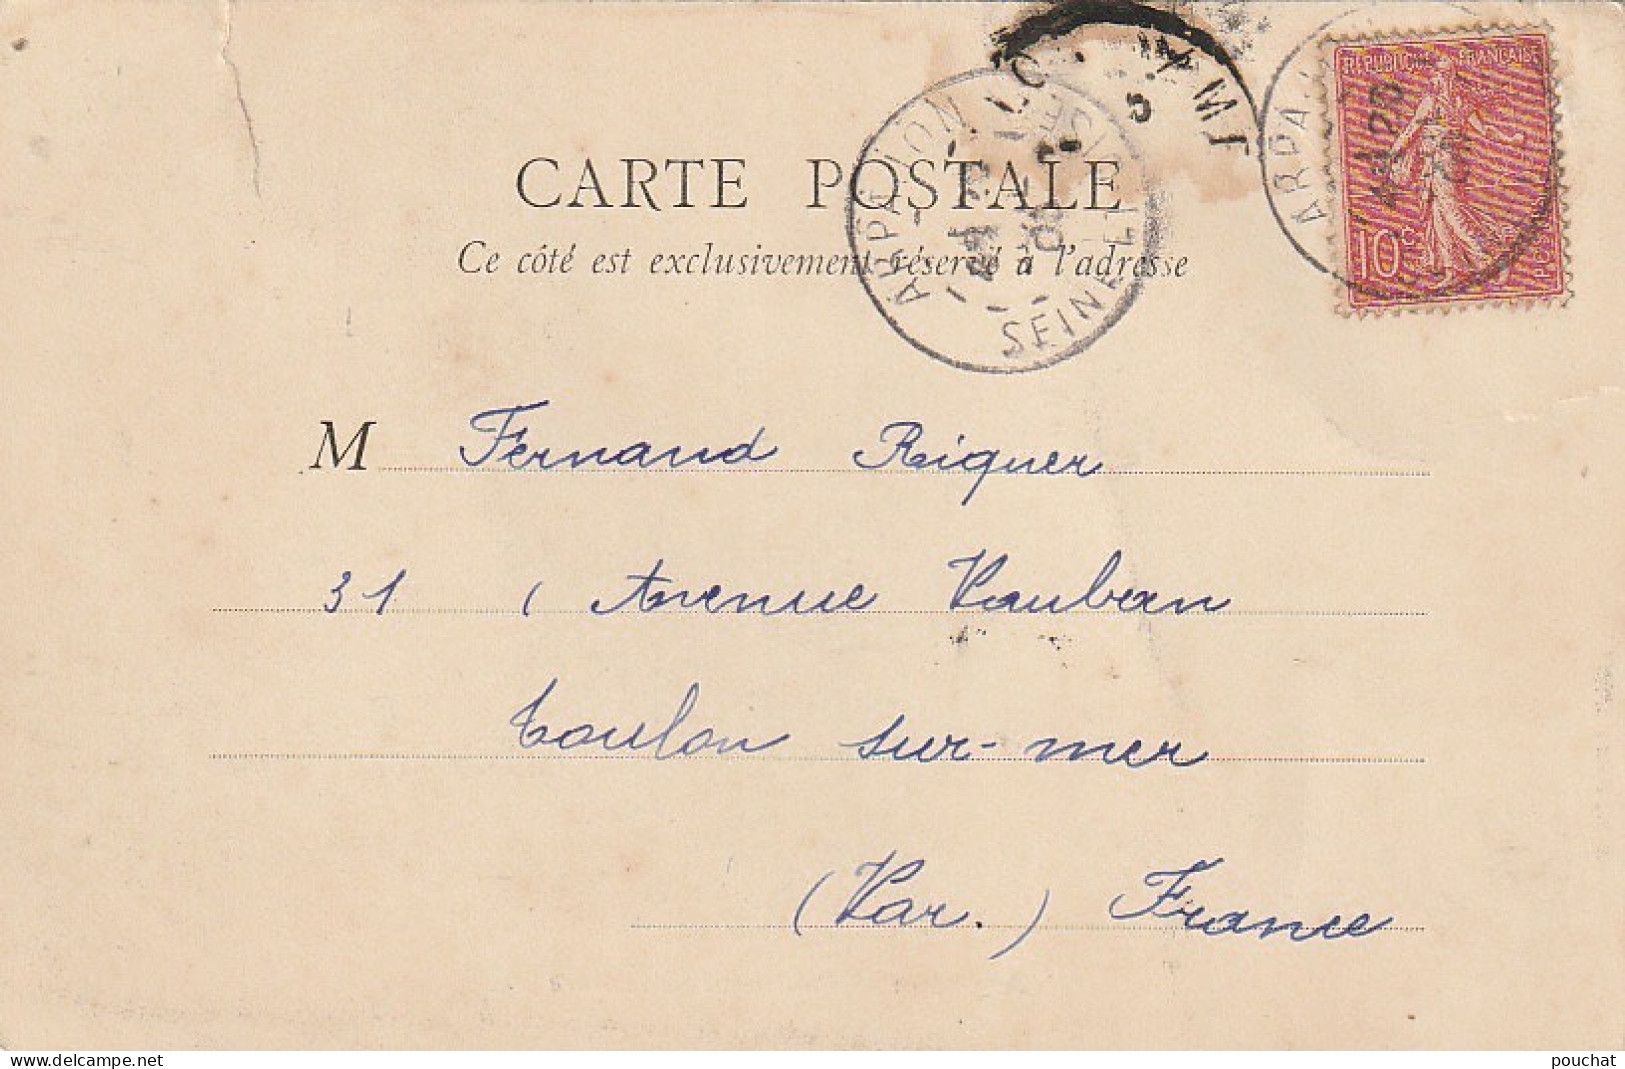 CARTE POSTALE
Ce côté est exclusivement réservé à l'adresse
ARPAJON
SEINE-ET-OISE
ARPAJ
REPUBLIQUE FRANÇAISE
10c
POSTES
M Fernand Riquer
31, Avenue Vauban
Toulon sur-mer
(Var.) France
delcampe.net
pouchat